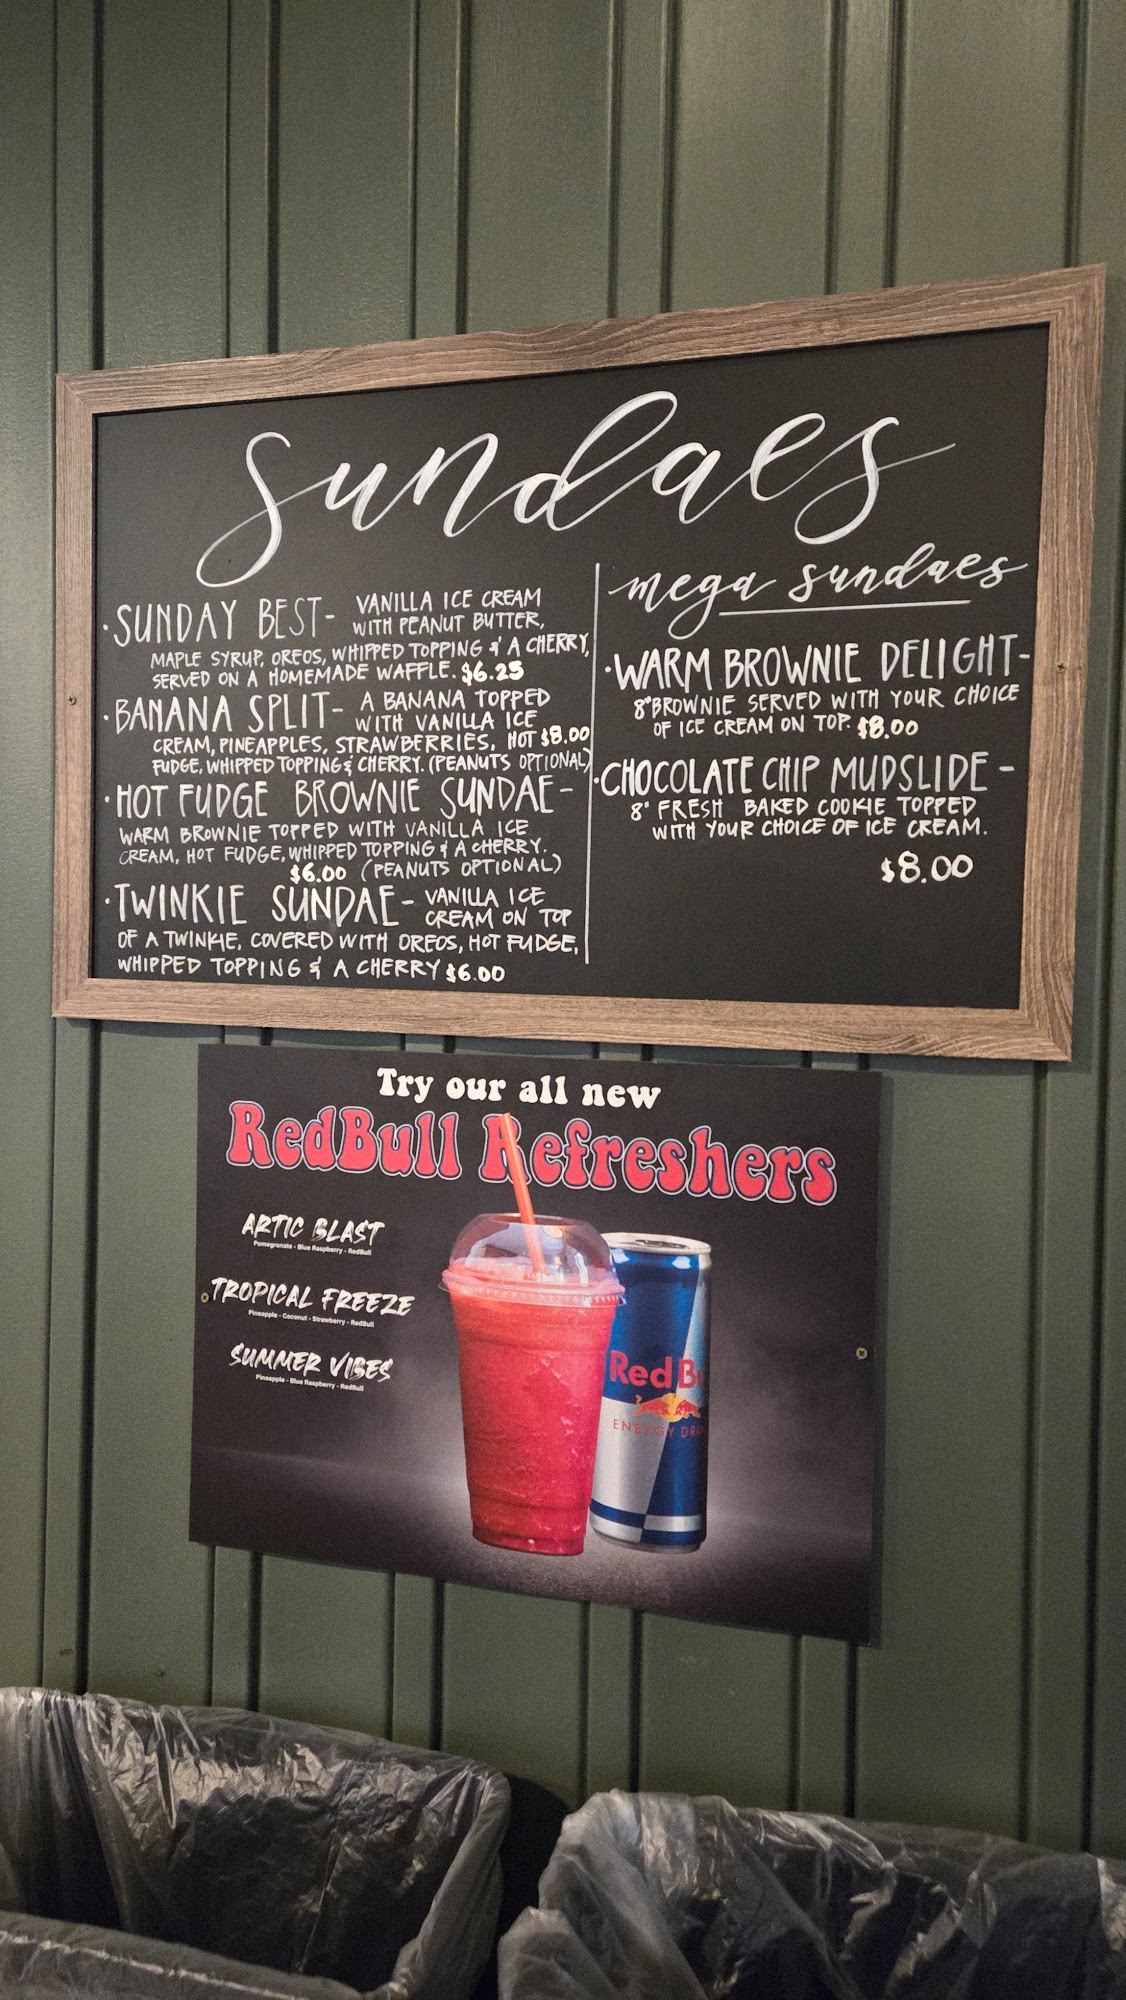 Sundaes
·SUNDAY BEST- VANILLA ICE CREAM
WITH PEANUT BUTTER,
MAPLE SYRUP, OREOS, WHIPPED TOPPING & A CHERRY,
SERVED ON A HOMEMADE WAFFLE. $6.25
·BANANA SPLIT- A BANANA TOPPED
WITH VANILLA ICE
CREAM, PINEAPPLES, STRAWBERRIES, HOT $8.00
FUDGE, WHIPPED TOPPING & CHERRY. (PEANUTS OPTIONAL)
·HOT FUDGE BROWNIE SUNDAE-
WARM BROWNIE TOPPED WITH VANILLA ICE
CREAM, HOT FUDGE, WHIPPED TOPPING & A CHERRY.
$6.00 (PEANUTS OPTIONAL)
·TWINKIE SUNDAE- VANILLA ICE
CREAM ON TOP
OF A TWINKIE, COVERED WITH OREOS, HOT FUDGE,
WHIPPED TOPPING & A CHERRY $6.00
mega sundaes
·WARM BROWNIE DELIGHT-
8" BROWNIE SERVED WITH YOUR CHOICE
OF ICE CREAM ON TOP. $8.00
·CHOCOLATE CHIP MUDSLIDE-
8" FRESH BAKED COOKIE TOPPED
WITH YOUR CHOICE OF ICE CREAM.
$8.00
Try our all new
RedBull Refreshers
ARTIC BLAST
Pomegranate - Blue Raspberry - RedBull
TROPICAL FREEZE
Pineapple - Coconut - Strawberry - RedBull
SUMMER VIBES
Pineapple - Blue Raspberry - RedBull
Red Bu
ENERGY DRIN